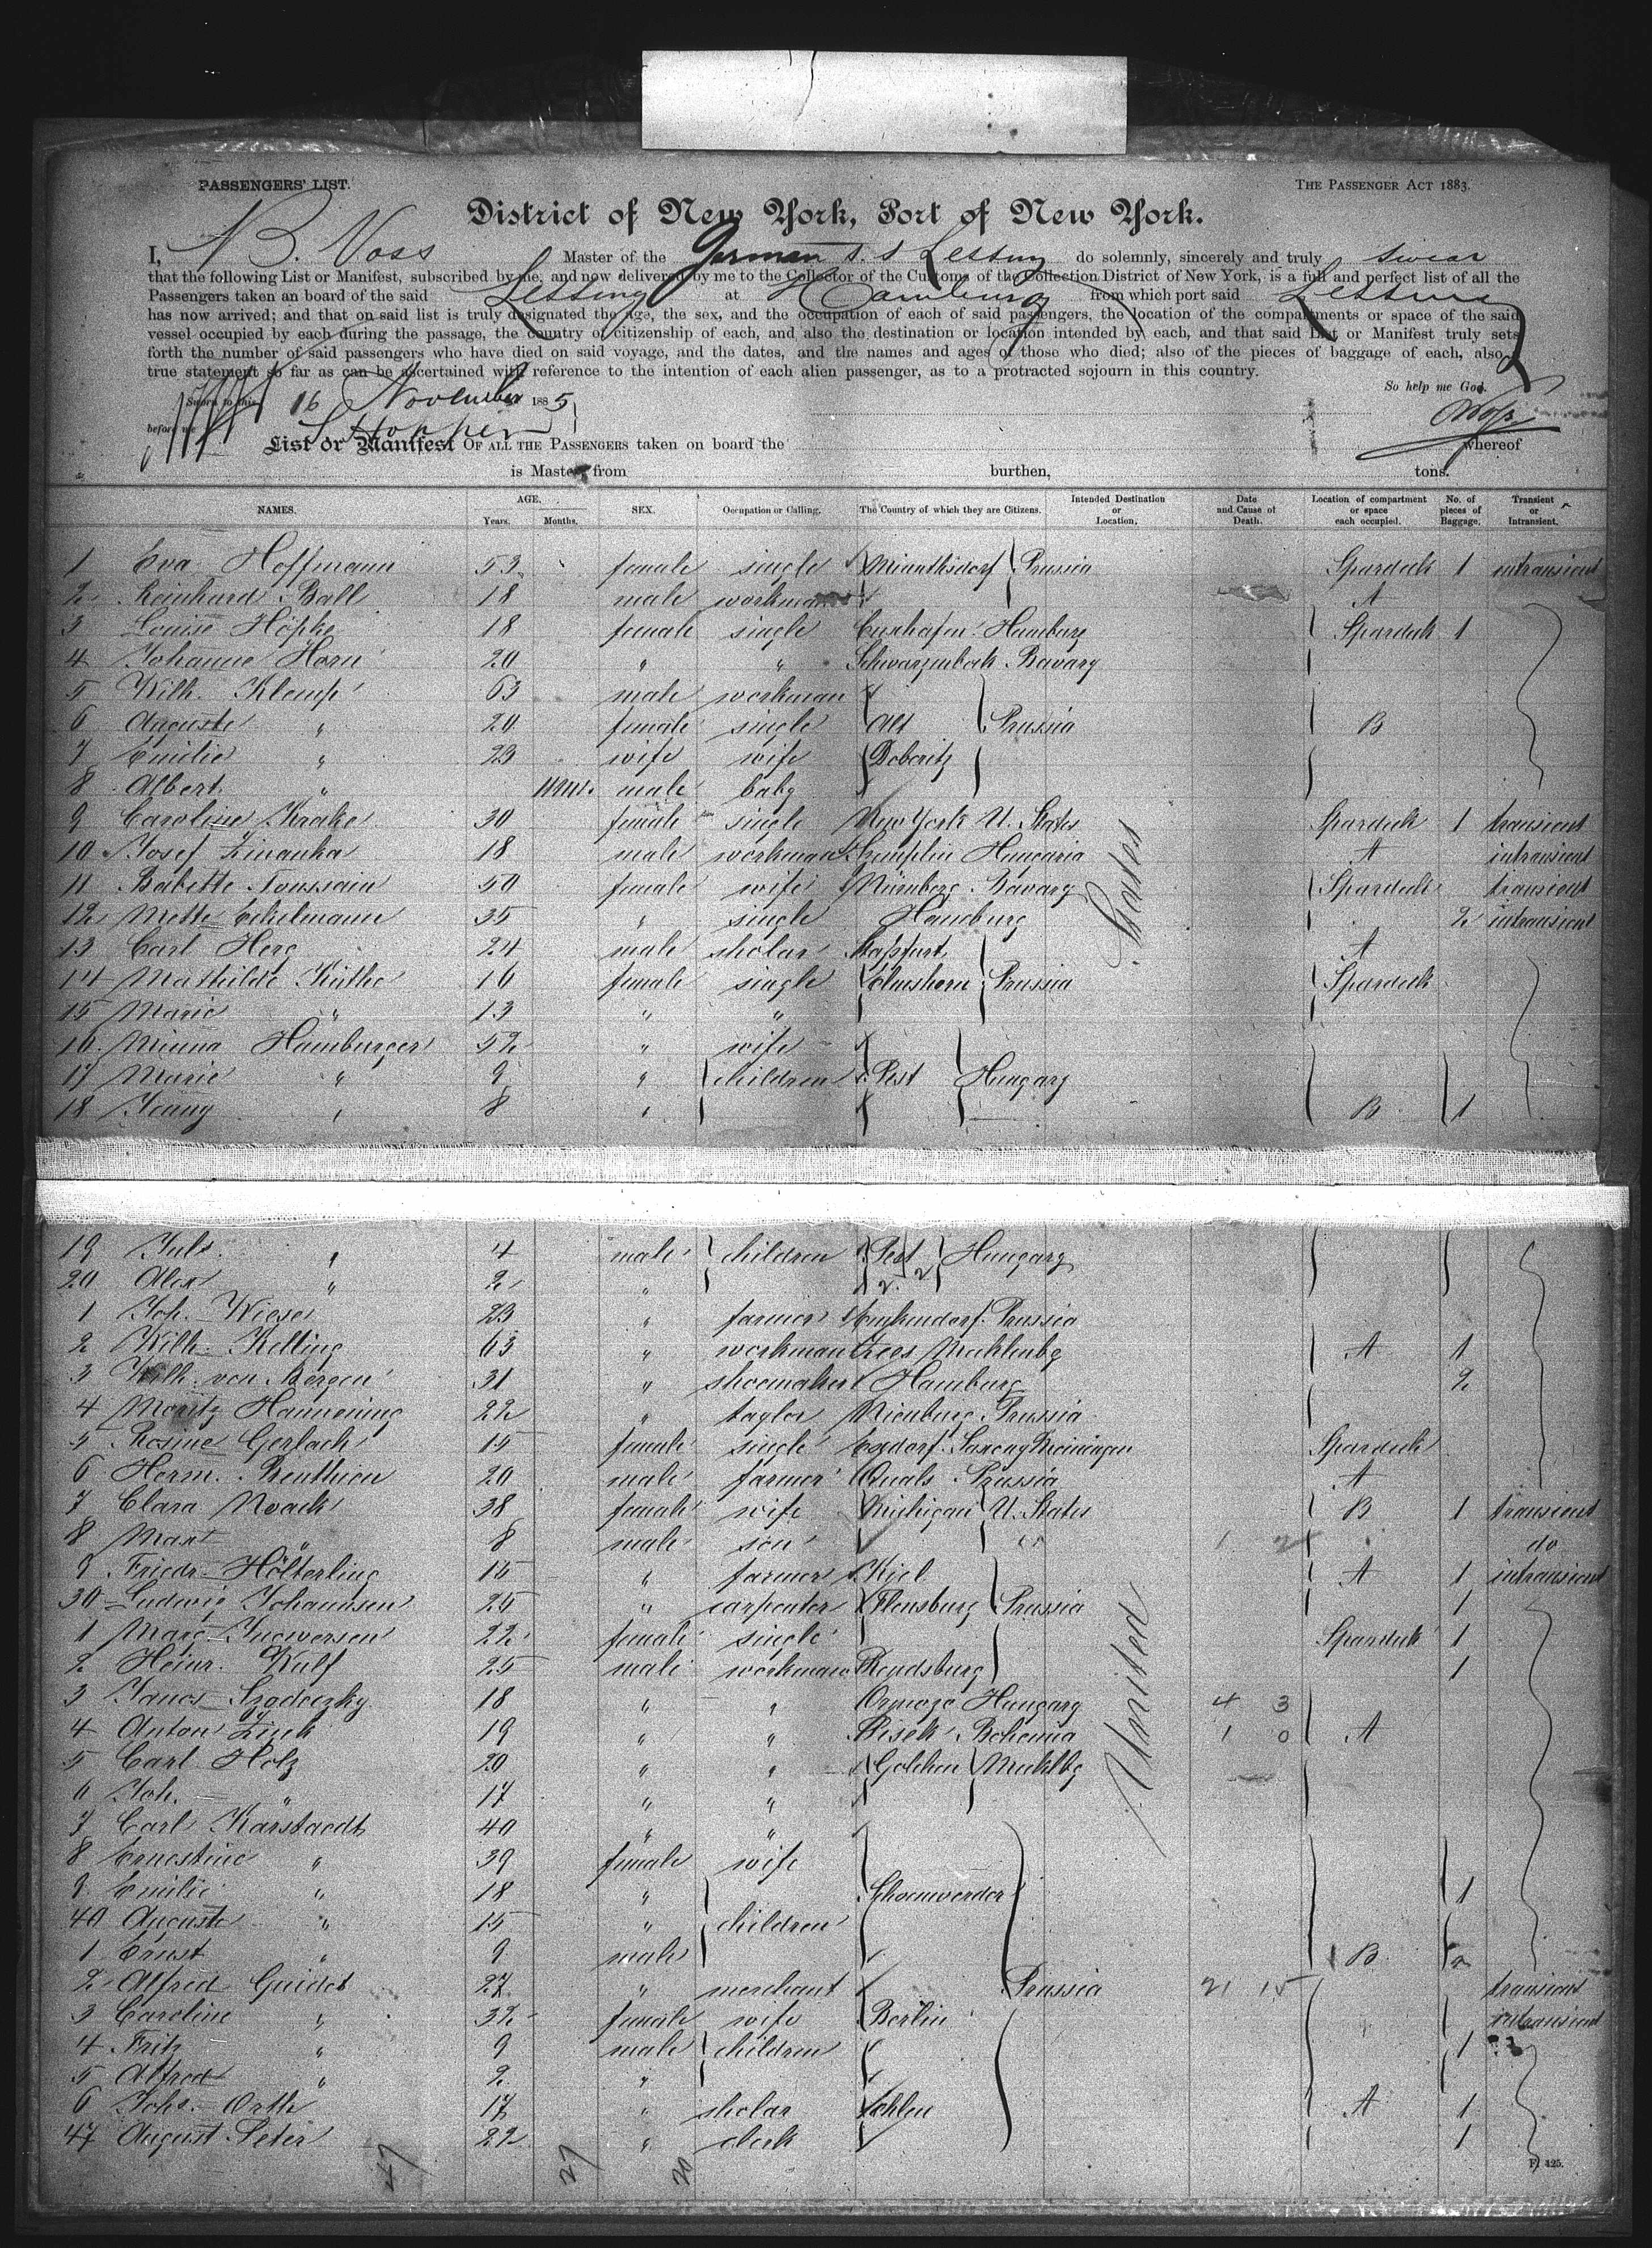 PASSENGERS' LIST.
THE PASSENGER ACT 1883.
District of New York, Port of New York.
I, B. Voss Master of the German S. S Lessing do solemnly, sincerely and truly swear
that the following List or Manifest, subscribed by me, and now delivered by me to the Collector of the Customs of the Collection District of New York, is a full and perfect list of all the
Passengers taken an board of the said Lessing at Hamburg from which port said Lessing
has now arrived; and that on said list is truly designated the age, the sex, and the occupation of each of said passengers, the location of the compartments or space of the said
vessel occupied by each during the passage, the country of citizenship of each, and also the destination or location intended by each, and that said List or Manifest truly sets
forth the number of said passengers who have died on said voyage, and the dates, and the names and ages of those who died; also of the pieces of baggage of each, also a
true statement so far as can be ascertained with reference to the intention of each alien passenger, as to a protracted sojourn in this country.
So help me God.
Sworn to this 16 November 1885
before me
Voss
List or Manifest OF ALL THE PASSENGERS taken on board the whereof
is Master, from burthen, tons.
NAMES. AGE. Years. Months. SEX. Occupation or Calling. The Country of which they are Citizens. Intended Destination or Location. Date and Cause of Death. Location of compartment or space each occupied. No. of pieces of Baggage. Transient or Intransient.
1 Eva Hoffmann 53 female single Prussia Spardeck 1 intransient
2 Reinhard Ball 18 male workman A
3 Louise Höpke 18 female single Cuxhafen Hamburg Spardeck 1
4 Johanne Horn 20 " " Schwarzenbach Bavary
5 Wilh. Klemp 63 male workman
6 Auguste " 20 female single Alt Prussia B
7 Emilie " 23 wife wife Doberitz
8 Albert " 11 mts. male baby
9 Caroline Krake 30 female single New York U. States Spardeck 1 transient
10 Josef 18 male workman Hungaria A intransient
11 Babette Toussain 50 female wife Nürnberg Bavary Spardeck transient
12 Mette Eckelmann 35 " single Hamburg 2 intransient
13 Carl Herg 24 male sholar A
14 Mathilde Küthe 16 female single Elmshorn Prussia Spardeck
15 Marie " 13 " "
16 Minna Hamburger 52 " wife
17 Marie " 9 " children Pest Hungary
18 Jenny " 8 " B 1
19 Juls. " 4 male children Pest Hungary
20 Alex " 2 "
1 Joh. Wiese 23 " farmer Emkendorf Prussia
2 Wilh. Kelling 63 " workman Mecklenbg A 1
3 Wilh. von Bergen 31 " shoemaker Hamburg 2
4 Moritz Hannening 22 " taylor Nienburg Prussia
5 Rosine Gerlach 15 female single Exdorf Saxeny Meiningen Spardeck
6 Herm. Benthien 20 male farmer Quals Prussia A
7 Clara Noack 38 female wife Michigan U. States B 1 transient
8 Max " 8 male son " 1 2 do
9 Friedr. Hölterling 15 " farmer Kiel A 1 intransient
30 Ludwig Johannsen 25 " carpenter Flensburg Prussia 1
1 Marg. Ingwersen 22 female single Spardeck 1
2 Heinr. Wulf 25 male workman Rendsburg 1
3 Janos 18 " " Hungary 4 3
4 Anton Zink 19 " " Pisek Bohemia 1 0 A
5 Carl Holz 20 " " Golchen Mecklbg
6 Joh. " 17 " "
7 Carl Karstaedt 40 " "
8 Ernestine " 39 female wife
9 Emilie " 18 " Schoenwerder 1
40 Auguste " 15 " children
1 Ernst " 9 male B 2
2 Alfred Guidet 27 " merchant Prussia 21 15 transient
3 Caroline " 32 female wife Berlin intransient
4 Fritz " 9 male children 1
5 Alfred " 2 "
6 Johs. Orth 17 " sholar A 1
47 August Peter 22 " clerk 1
United States
47 27 20
F. 425.